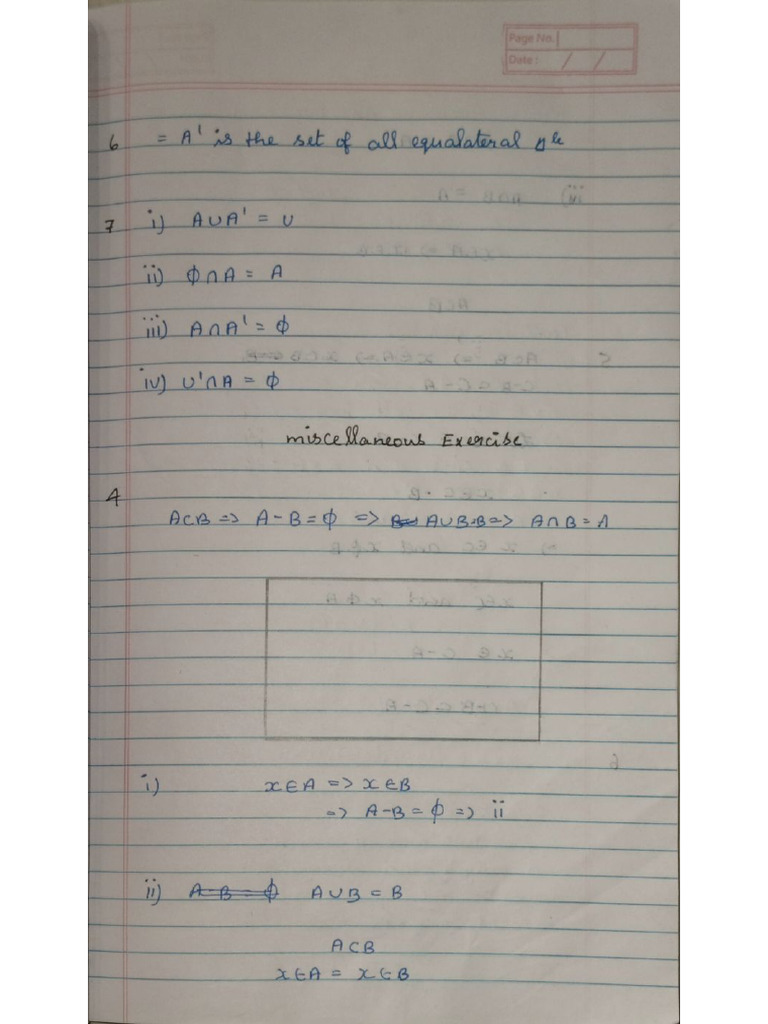 Page No.
Date : / /
6 = A' is the set of all equalateral Δle
7 i) A∪A' = U
ii) ϕ∩A = A
iii) A∩A' = ϕ
iv) U'∩A = ϕ
miscellaneous Exercise
4
A⊂B => A-B = ϕ => A∪B=B => A∩B = A
i) x∈A => x∈B
=> A-B = ϕ => ii
ii) A-B=ϕ A∪B = B
A⊂B
x∈A = x∈B